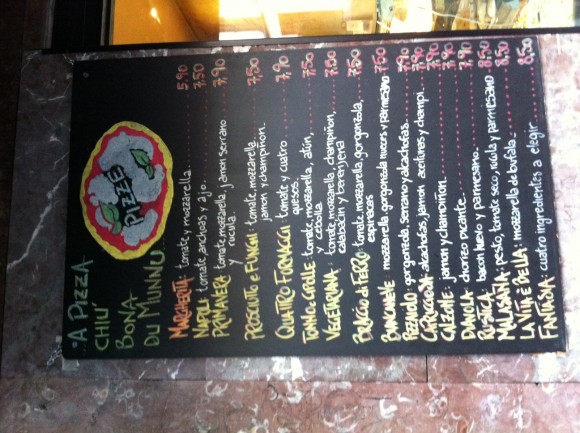 "A PIZZA
CHIÚ
BONA
DU MUNNU"
PIZZÉ
MARGHERITA: tomate y mozzarella 5,90
NAPOLI: tomate, anchoas y ajo. 7,50
PRIMAVERA tomate, mozzarella, jamon serrano 7,90
y rucula.
PROSCIUTTO E FUNGHI: tomate, mozzarella, 7,50
jamon y champiñon.
QUATTRO FORMAGGI: tomate y cuatro 7,90
quesos.
TONNO e CIPOLLE: tomate, mozzarella, atún, 7,50
y cebolla
VEGETARIANA: tomate, mozzarella, champiñon, 7,00
calabacin y berenjena
BRACCIO di FERRO: tomate, mozzarella, gorgonzola, 7,50
espinacas
BIANCANEVE mozzarella, gorgonzola, nueces y parmesano 7,50
gorgonzola, serrano y alcachofas. 7,90
CAPRICCIOSA: alcachofas, jamon aceitunas y champi. 7,90
CALZONE: jamon y champiñon. 7,90
DIAVOLA: chorizo picante. 7,90
RUSTICA: bacon huevo y parmesano. 7,90
pesto, tomate seco, rucula y parmesano 8,50
LA VITA È BELLA: mozzarella de bufala. 8,50
FANTASIA: cuatro ingredientes a elegir. 8,50